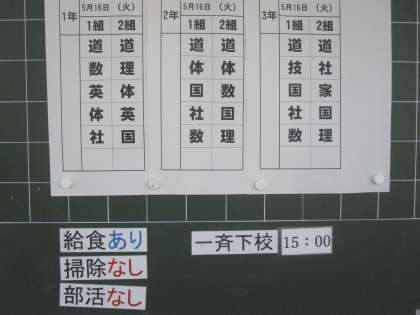 1年 5月16日 (火) 2年 5月16日 (火) 3年 5月16日 (火)
1組 2組 1組 2組 1組 2組
道 道 道 道 道 道
数 理 体 体 技 社
英 体 国 数 国 家
体 英 社 国 社 国
社 国 数 理 数 理
給食あり 一斉下校 15:00
掃除なし
部活なし